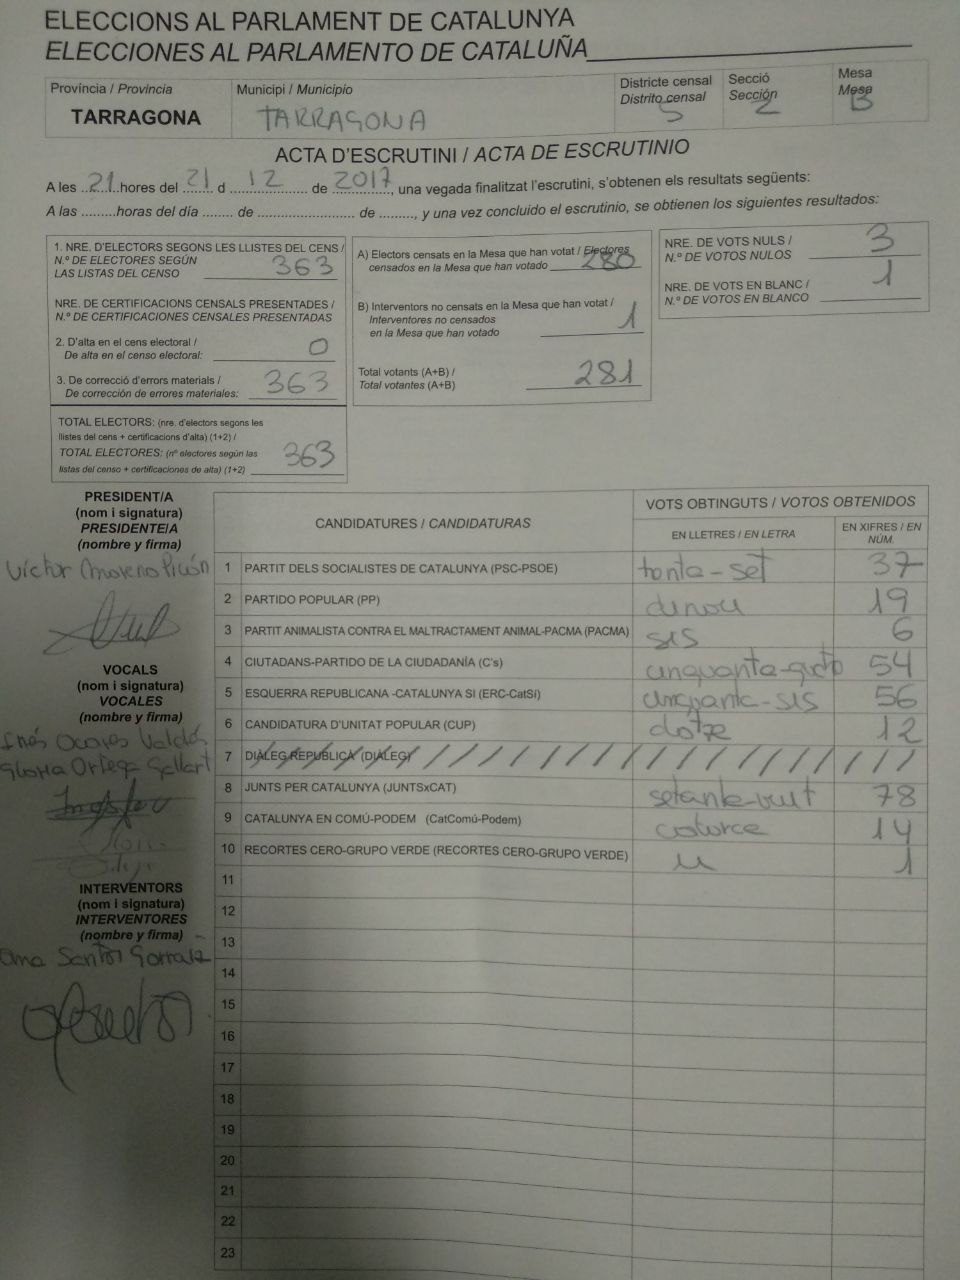 ELECCIONS AL PARLAMENT DE CATALUNYA
ELECCIONES AL PARLAMENTO DE CATALUÑA
Província / Provincia
TARRAGONA
Municipi / Municipio
TARRAGONA
Districte censal
Distrito censal
5
Secció
Sección
2
Mesa
Mesa
B
ACTA D'ESCRUTINI / ACTA DE ESCRUTINIO
A les 21 hores del 21 d 12 de 2017, una vegada finalitzat l'escrutini, s'obtenen els resultats següents:
A las .........horas del día ........ de ......................... de ........., y una vez concluido el escrutinio, se obtienen los siguientes resultados:
1. NRE. D'ELECTORS SEGONS LES LLISTES DEL CENS /
N.º DE ELECTORES SEGÚN
LAS LISTAS DEL CENSO 363
NRE. DE CERTIFICACIONS CENSALS PRESENTADES /
N.º DE CERTIFICACIONES CENSALES PRESENTADAS
2. D'alta en el cens electoral /
De alta en el censo electoral: 0
3. De correcció d'errors materials /
De corrección de errores materiales: 363
TOTAL ELECTORS: (nre. d'electors segons les
llistes del cens + certificacions d'alta) (1+2) /
TOTAL ELECTORES: (nº electores según las
listas del censo + certificaciones de alta) (1+2) 363
A) Electors censats en la Mesa que han votat / Electores
censados en la Mesa que han votado 280
B) Interventors no censats en la Mesa que han votat /
Interventores no censados
en la Mesa que han votado 1
Total votants (A+B) /
Total votantes (A+B) 281
NRE. DE VOTS NULS /
N.º DE VOTOS NULOS 3
NRE. DE VOTS EN BLANC /
N.º DE VOTOS EN BLANCO 1
PRESIDENT/A
(nom i signatura)
PRESIDENTE/A
(nombre y firma)
Víctor Moreno Picón
VOCALS
(nom i signatura)
VOCALES
(nombre y firma)
Inés Valdés
Gloria Ortega Gallart
INTERVENTORS
(nom i signatura)
INTERVENTORES
(nombre y firma)
Ana Santos
CANDIDATURES / CANDIDATURAS
VOTS OBTINGUTS / VOTOS OBTENIDOS
EN LLETRES / EN LETRA
EN XIFRES / EN NÚM.
1 PARTIT DELS SOCIALISTES DE CATALUNYA (PSC-PSOE) trenta-set 37
2 PARTIDO POPULAR (PP) dinou 19
3 PARTIT ANIMALISTA CONTRA EL MALTRACTAMENT ANIMAL-PACMA (PACMA) sis 6
4 CIUTADANS-PARTIDO DE LA CIUDADANÍA (C's) cinquanta-quatre 54
5 ESQUERRA REPUBLICANA -CATALUNYA SÍ (ERC-CatSí) cinquanta-sis 56
6 CANDIDATURA D'UNITAT POPULAR (CUP) dotze 12
7 DIÀLEG REPUBLICÀ (DIÀLEG)
8 JUNTS PER CATALUNYA (JUNTSxCAT) setanta-vuit 78
9 CATALUNYA EN COMÚ-PODEM (CatComú-Podem) catorce 14
10 RECORTES CERO-GRUPO VERDE (RECORTES CERO-GRUPO VERDE) u 1
11
12
13
14
15
16
17
18
19
20
21
22
23